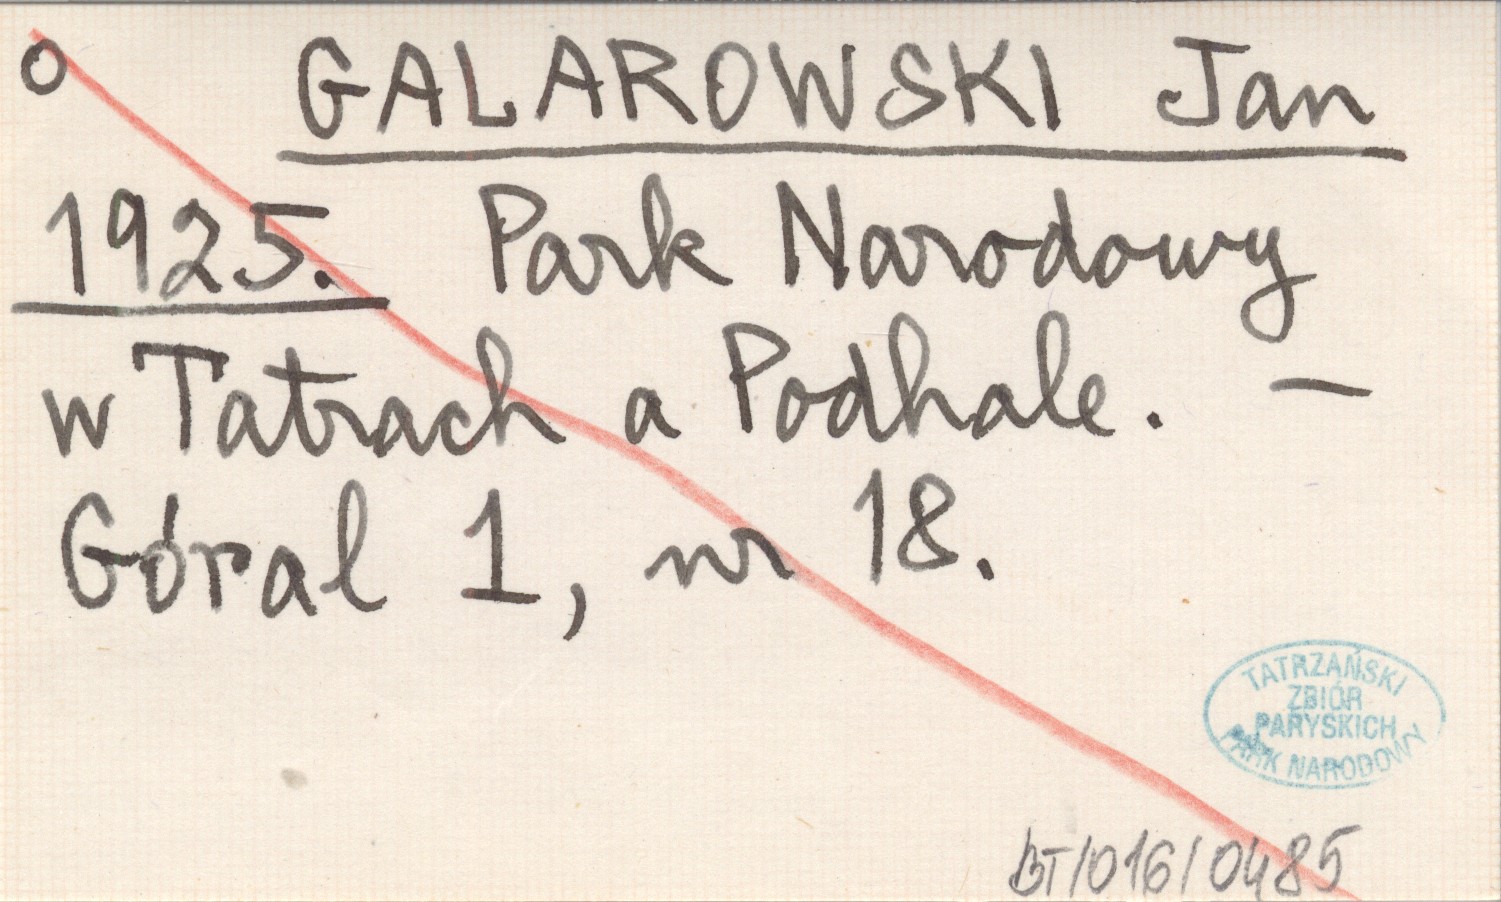 o GALAROWSKI Jan
1925. Park Narodowy
w Tatrach a Podhale. —
Góral 1, nr 18.
TATRZAŃSKI
ZBIÓR
PARYSKICH
PARK NARODOWY
BT/016/0485